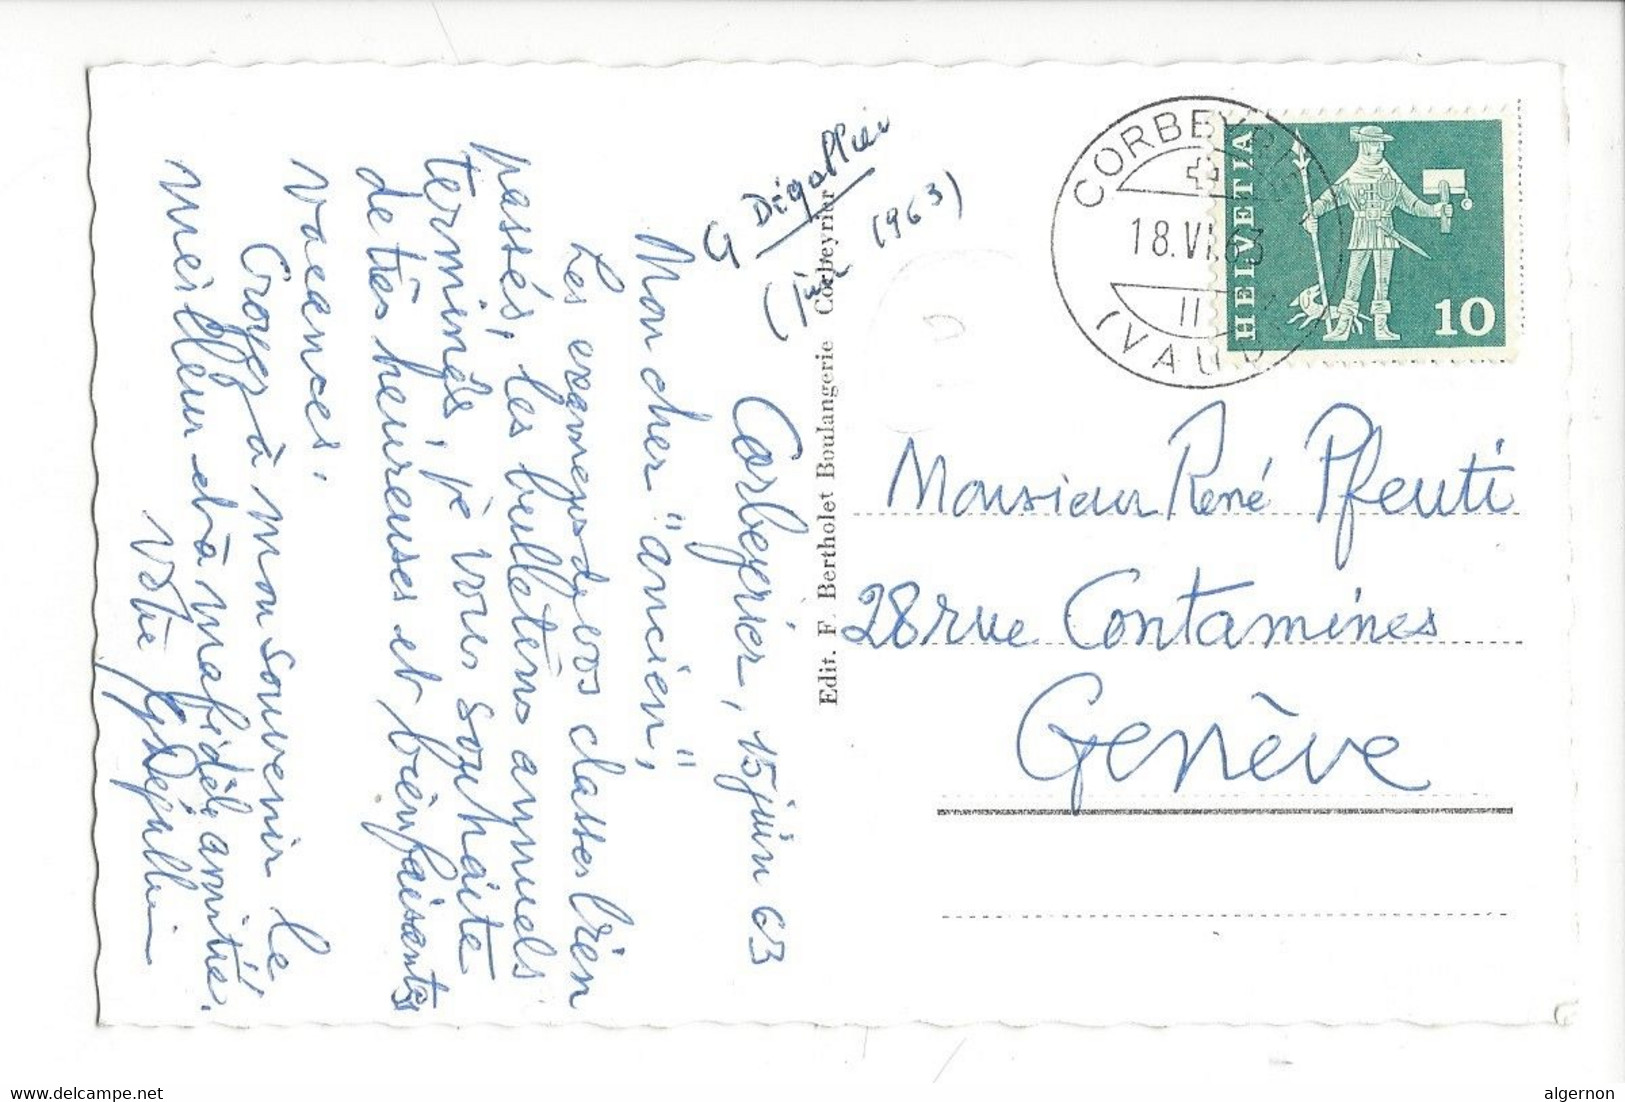 G Dégallier
(1963)
Corbeyrier, 15 juin 63
Mon cher "ancien",
Les examens de vos classes bien
passés, les bulletins annuels
terminés, je vous souhaite
de très heureuses et bienfaisantes
vacances.
Croyez à mon souvenir le
meilleur et à ma fidèle amitié.
Votre GDégallier
Edit. F. Bertholet Boulangerie Corbeyrier
CORBEYRIER
18.VI.63
11
(VAUD)
HELVETIA
10
Monsieur René Pfeuti
28 rue Contamines
Genève
www.delcampe.net
algernon